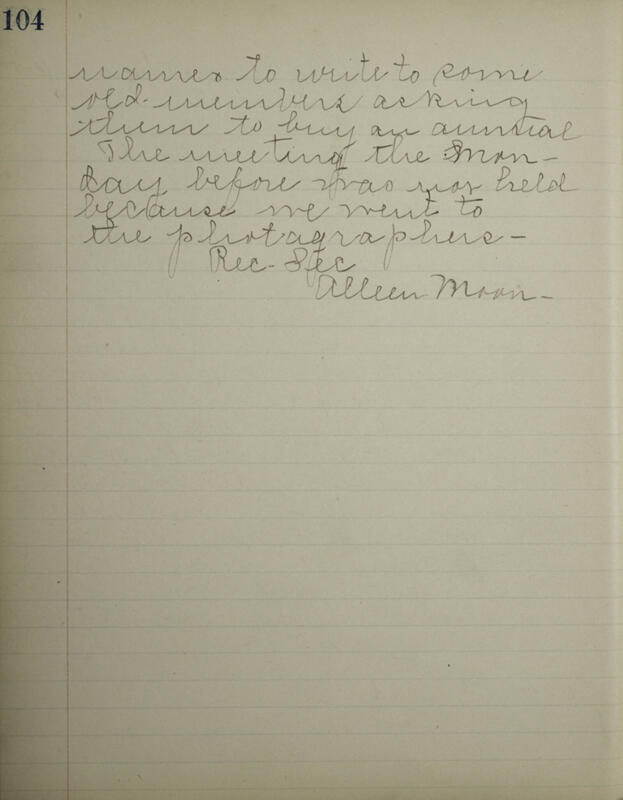 104
names to write to some
old members asking
them to buy an annual
The meeting the Mon-
day before was not held
because we went to
the photagraphers-
Rec- Sec
Alleen Moon-